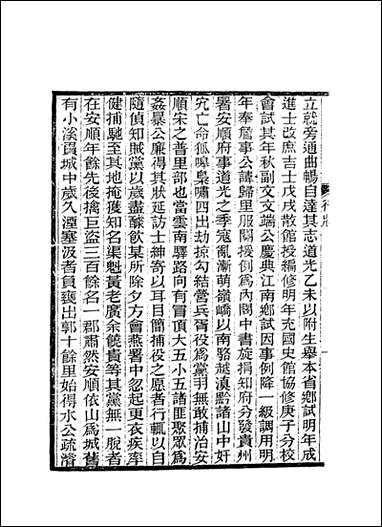 立就旁通曲暢自達其志道光乙未以附生舉本省鄉試明年成
進士改庶吉士戊戌散館授編修明年充國史館協修庚子分校
會試其年秋副文文端公慶典江南鄉試因事例降一級調用明
年奉詹事公諱歸里服闋援例為內閣中書旋捐知府分發貴州
署安順府事道光之季寇亂漸萌嶺嶠以南騷越滇黔諸山中奸
宄亡命狐嘷梟嘯四出劫掠勾結營兵胥役為黨羽無敢捕治安
順宋之普里部也當雲南驛路向有冒頂大五小五諸匪聚眾為
姦暴公廉得其狀延訪士紳奇以耳目簡捕役之愿者行輒以自
隨偵知賊黨以歲盡釀飲某所除夕方會燕署中忽起更衣疾率
健捕馳至其地掩獲知名渠魁黃老廣余饒貴等其黨無一脫者
在安順年餘先後擒巨盜三百餘名一郡肅然安順依山為城舊
有小溪貫城中歲久湮塞汲者負甕出郭十餘里始得水公疏濬